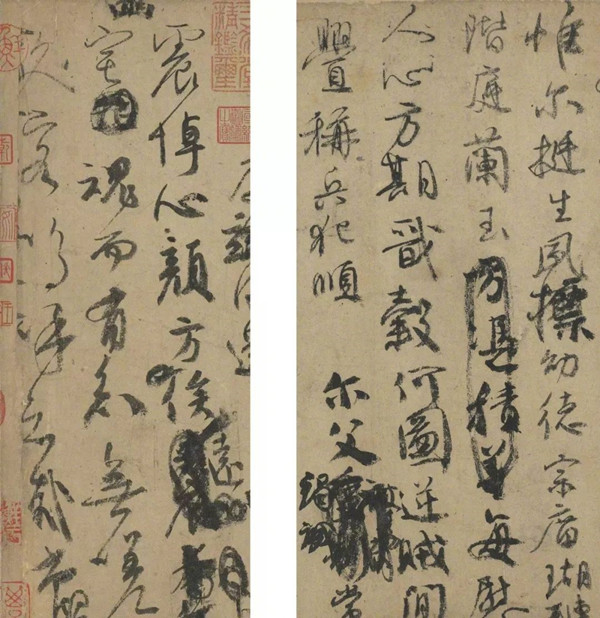 惟尔挺生夙標幼德宗庿瑚
階庭蘭玉方憑積善每慰
人心方期戩穀何圖逆賊閒
釁稱兵犯順 尔父 常
兹同還
震悼心顏方俟遠日
宅魂而有知無嗟
久客嗚呼哀哉尚饗